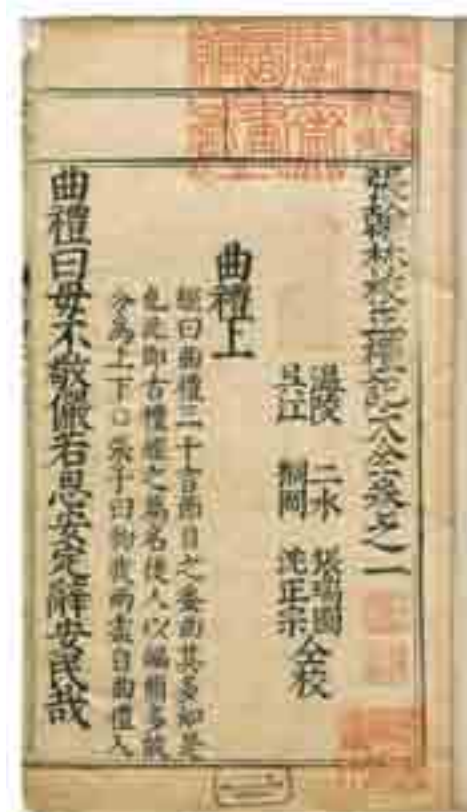 張翰林校正禮記大全卷之一
溫陵 二水 張瑞圖
江 桐岡 沈正宗
仝校
曲禮上
經曰曲禮三千言節目之委曲其多如是
也此即古禮經之篇名後人以編簡多故
分為上下○張子曰物我兩盡自曲禮入
曲禮曰毋不敬儼若思安定辭安民哉